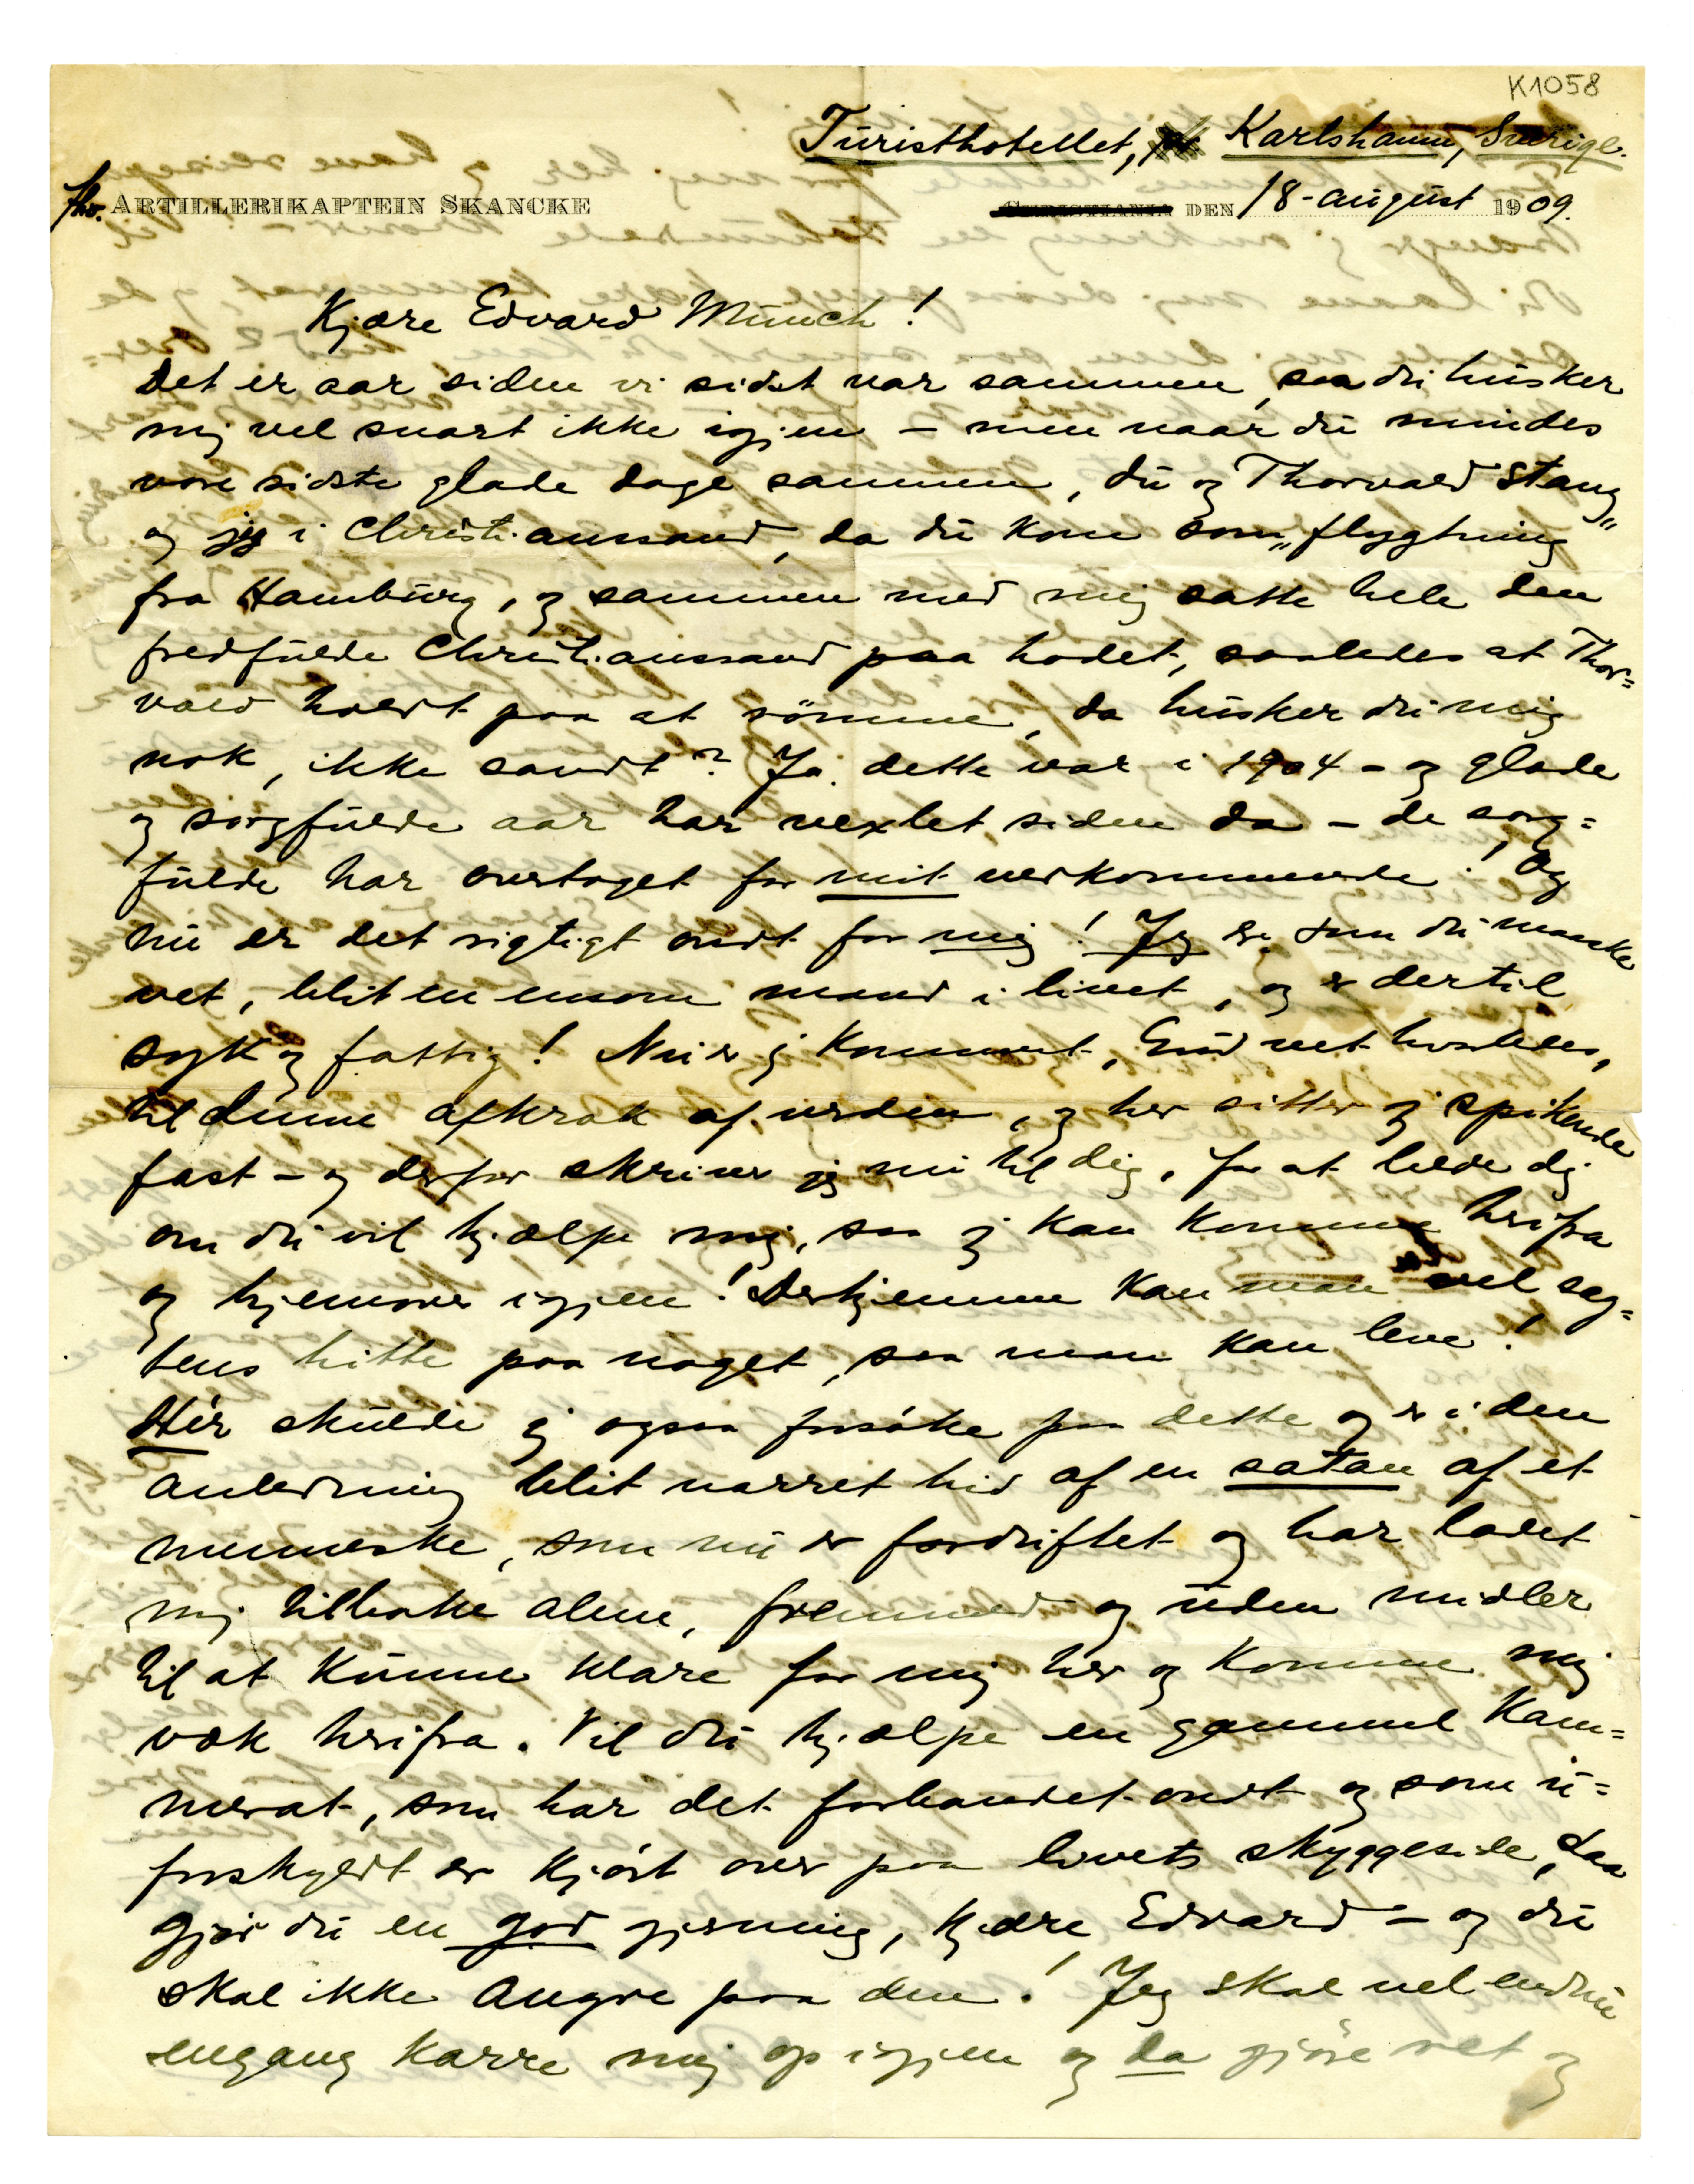 K1058
Turisthotellet, Karlshamn, Sverige.
fhv. ARTILLERIKAPTEIN SKANCKE
CHRISTIANIA DEN 18-august 1909.
Kjære Edvard Munch!
Det er aar siden vi sidst var sammen, saa du husker
mig vel snart ikke igjen – men naar du mindes
vore sidste glade dage sammen, du og Thorvald Stang
og jeg i Christianssand, da du kom som „flygtning"
fra Hamburg, og sammen med mig satte hele den
fredfulde Christianssand paa hodet, saaledes at Thor=
vald holdt paa at rømme, da husker du mig
nok, ikke sandt? Ja dette var i 1904 – og glade
og sorgfulde aar har vexlet siden da – de sorg=
fulde har overtaget for mit vedkommende! Og
nu er det rigtigt ondt for mig! Jeg er som du maaske
vet, blit en ensom mand i livet, og er dertil
syk og fattig! Nu er jeg kommet, Gud vet hvorledes,
til denne afkrok af verden, og her sitter jeg spikende
fast – og derfor skriver jeg nu til dig, for at bede dig
om du vil hjælpe mig, saa jeg kan komme herifra
og hjemover igjen! Derhjemme kan man vel sag=
tens hitte paa noget, saa man kan leve!
Hér skulde jeg ogsaa forsøke paa dette og er i den
anledning blit narret hid af en satan af et
menneske, som nu er fordriftet og har ladet
mig tilbake alene, fremmed og uden midler
til at kunne klare for mig her og komme mig
væk herifra. Vil du hjælpe en gammel kam=
merat, som har det forbandet ondt og som u=
forskyldt er kjørt over paa livets skyggeside, daa
gjør du en god gjerning, kjære Edvard – og du
skal ikke angre paa den! Jeg skal vel endnu
engang karre mig op igjen og da gjøre ret og